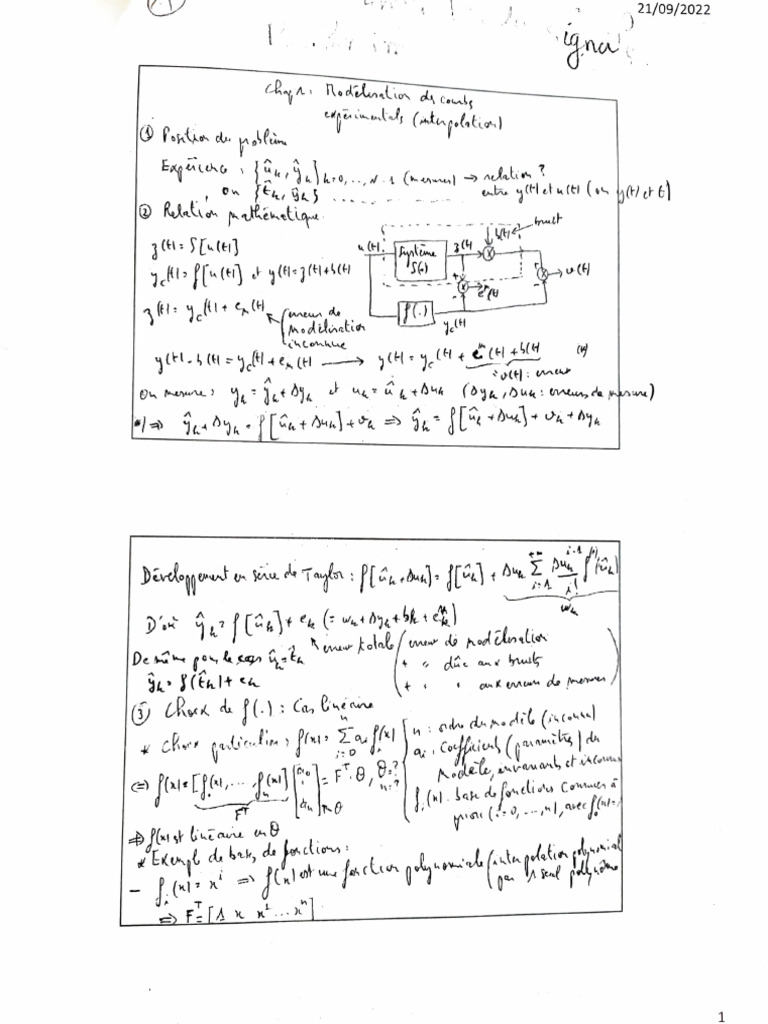 21/09/2022
Chap 1: Modélisation de courbes
expérimentales (interpolation)
① Position du problème
Expérience : {û_k, ŷ_k} k=0,..., N-1 (mesures) → relation ?
ou {t̂_k, ŷ_k} .......... entre y(t) et u(t) (ou y(t) et t)
② Relation mathématique
z(t) = S[u(t)]
y_c(t) = f[u(t)] et y(t) = z(t) + b(t)
z(t) = y_c(t) + e_m(t)
erreur de
modélisation
inconnue
u(t)
Système
S(.)
z(t)
b(t)
bruit
v(t)
f(.)
y_c(t)
y(t) - b(t) = y_c(t) + e_m(t) → y(t) = y_c(t) + e_m(t) + b(t) (*)
: v(t) : erreur
On mesure : y_k = ŷ_k + Δy_k et u_k = û_k + Δu_k (Δy_k, Δu_k : erreurs de mesure)
*) ⇒ ŷ_k + Δy_k = f[û_k + Δu_k] + v_k ⇒ ŷ_k = f[û_k + Δu_k] + v_k + Δy_k
Développement en série de Taylor : f[û_k + Δu_k] = f[û_k] + Δu_k ∑_{i=1}^{+∞} Δu_k^{i-1}/i! f^{(i)}(û_k)
w_k
D'où ŷ_k = f[û_k] + e_k (= w_k + Δy_k + b_k + e_k^m)
De même pour le cas û_k = t̂_k
ŷ_k = f(t̂_k) + e_k
erreur totale (erreur de modélisation
+ " dûe aux bruits
+ " " aux erreurs de mesures)
③ Choix de f(.) : Cas linéaire
* Choix particulier : f(x) = ∑_{i=0}^{n} a_i f_i(x)
n : ordre du modèle (inconnu)
a_i : Coefficients (paramètres) du
Modèle, invariants et inconnus
f_i(x) : base de fonctions connues à
priori (i=0, ..., n), avec f_0(x)=
⇔ f(x) = [f_0(x), ..., f_n(x)] [a_0 ⋮ a_n] = F^T·θ, θ=? n=?
F^T
θ
⇒ f(x) est linéaire en θ
* Exemple de bases de fonctions :
- f_i(x) = x^i ⇒ f(x) est une fonction polynomiale (interpolation polynomiale
par 1 seul polynôme
⇒ F^T = [1 x x² ... x^n]
1